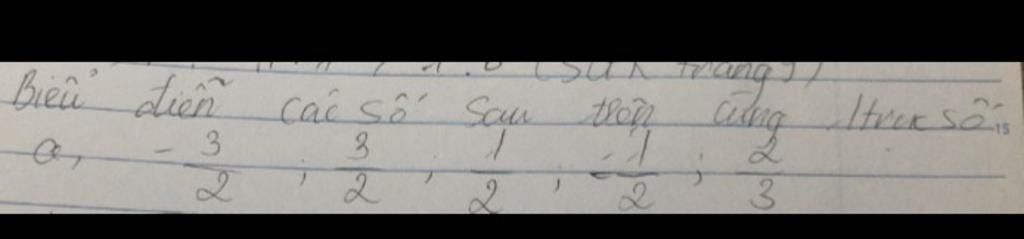 (SGK trang 9)
Biểu diễn các số sau trên cùng 1 trục số.
a, -3/2 ; 3/2 ; 1/2 ; -1/2 ; 2/3